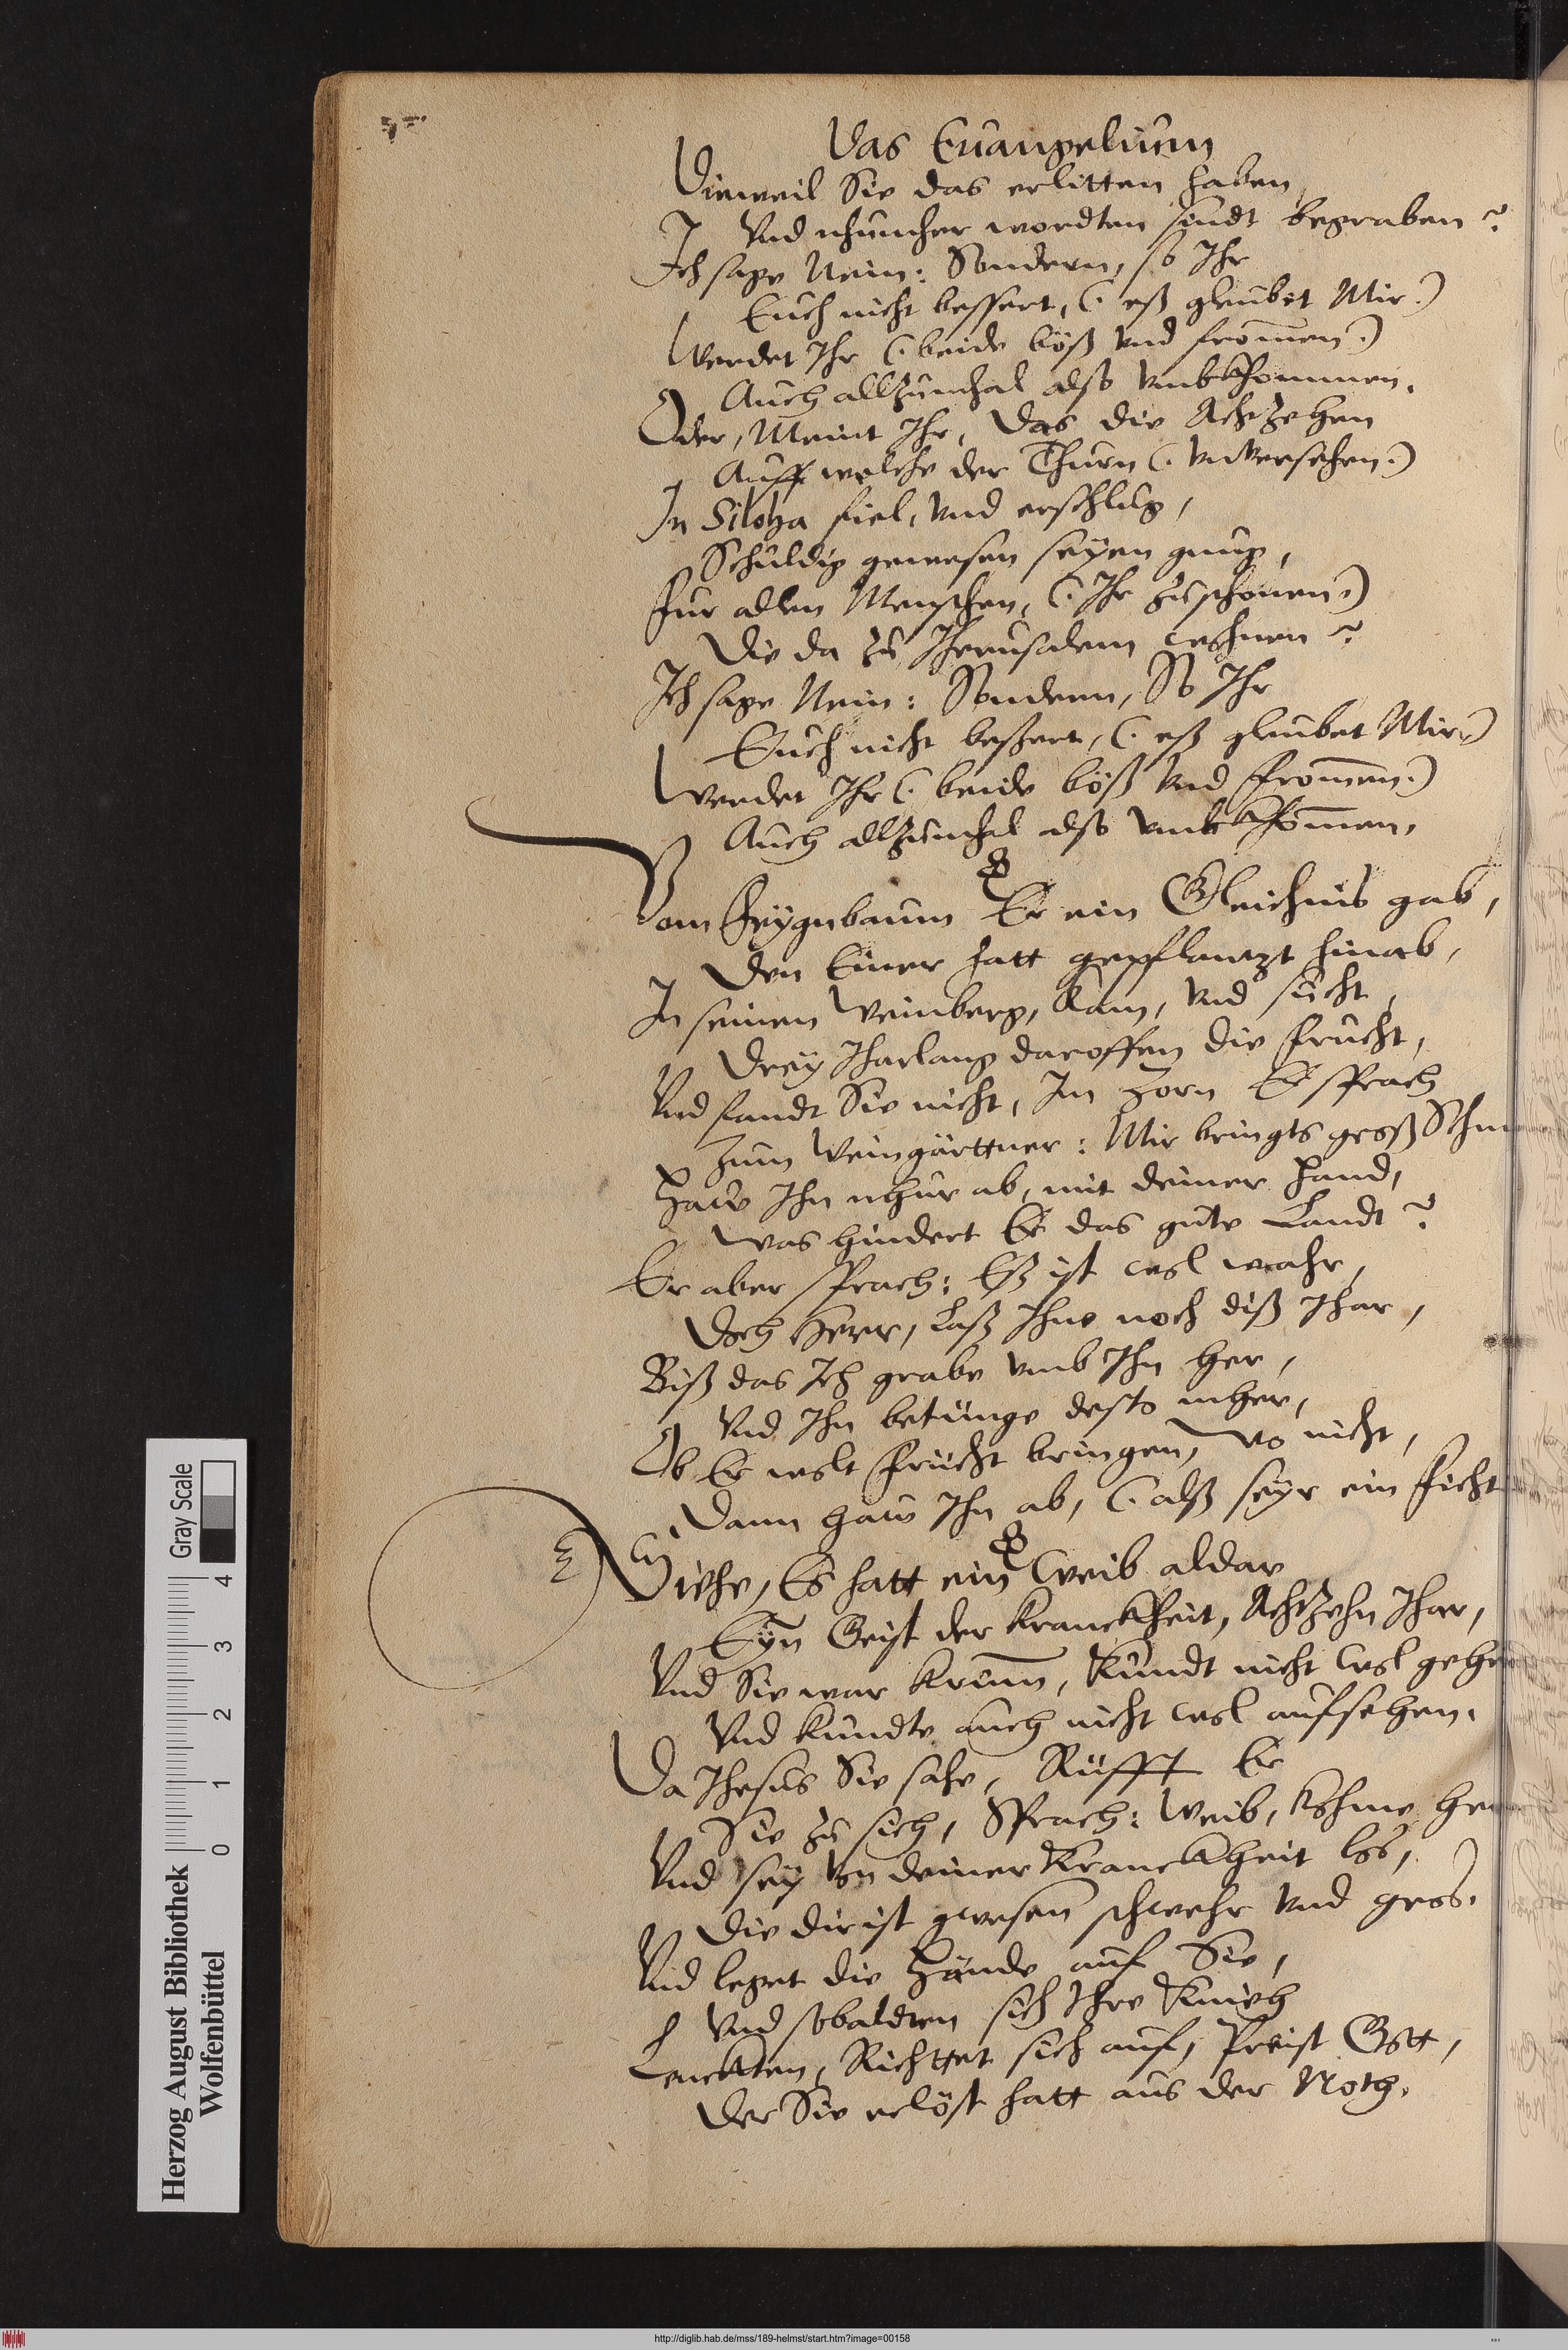 Das Euangelium
Dieweil Sie das erlitten haben,
Vnd nhuncher wordten sindt begraben?
Ich sage Nein: Sondern, so Ihr
Euch nicht bessert, (: eß gleubet Mir:)
Werdet Ihr (: beide böß vnd frommen:)
Auch allzumhal also vmbkhommen.
Oder, Meint Ihr, das die Achtzehen
Auff welche der Thurn (: vnversehen:)
In Siloha fiel, vnd erschlug,
Schuldig gewesen seyen gnug,
Fur allen Menschen, (: Ihr zuschonen:)
Die da zu Jherusalem wohnen?
Ich sage Nein: Sondern, So Ihr
Euch nicht beßert, (: eß gleubet Mir:)
Werdet Ihr (: beide böß vnd frommen:)
Auch allzumhal also vmbkhommen.
Vom Feygnbaum Er ein Gleichnis gab,
Den Einer hatt gepflantzt hinab,
In seinen Weinberg, kam, vnd sucht,
Drey Jharlang daroffen die frucht,
Vnd fandt Sie nicht, Im Zorn Er sprach
Zum Weingärttner: Mir bringts groß Schm
Haw Ihn nhur ab, mit deiner Hand,
Was hindert Er das gute Landt?
Er aber sprach: Eß ist wol wahr,
Doch Herr, Laß Ihne noch diß Jhar,
Biß das Ich grabe vmb Ihn her,
Vnd Ihn betünge desto mher,
Ob Er wolt frücht bringen, Wo nicht,
Dann haw Ihn ab, (: alß seyr ein ficht
Siehe, Es hatt ein Weib aldar
Eyn Geist der kranckheit, Achtzehn Jhar,
Vnd Sie war krumm, kundt nicht wol gehen
Vnd kundte auch nicht wol aufsehen.
Da Jhesus Sie sahe, Rüfft Er
Sie zu sich, Sprach: Weib, kohme her
Vnd sey von deiner kranckheit los,
Die dir ist gwesen schwehr vnd gros.
Vnd leget die Hände auf Sie,
Vnd sobaldten sich Ihre knieh
Lenckten, Richttet sich auf, Preist Gott,
Der Sie erlöst hatt aus der Noth.
Herzog August Bibliothek
Wolfenbüttel
Gray Scale
0 1 2 3 4
http://diglib.hab.de/mss/189-helmst/start.htm?image=00158